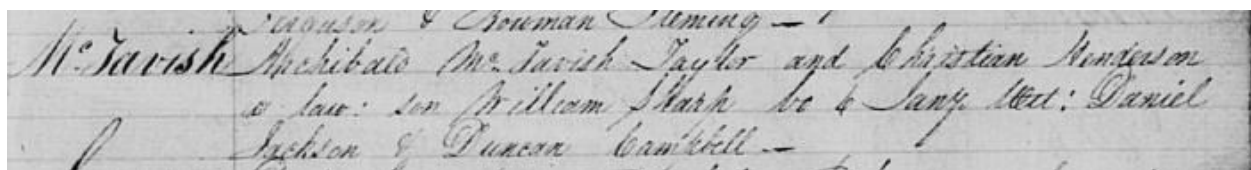 Ferguson & Bowman Fleming —
McTavish Archibald McTavish Taylor and Christian Henderson
a law: son William Sharp bo 6 Jany Wit: Daniel
Jackson & Duncan Campbell —